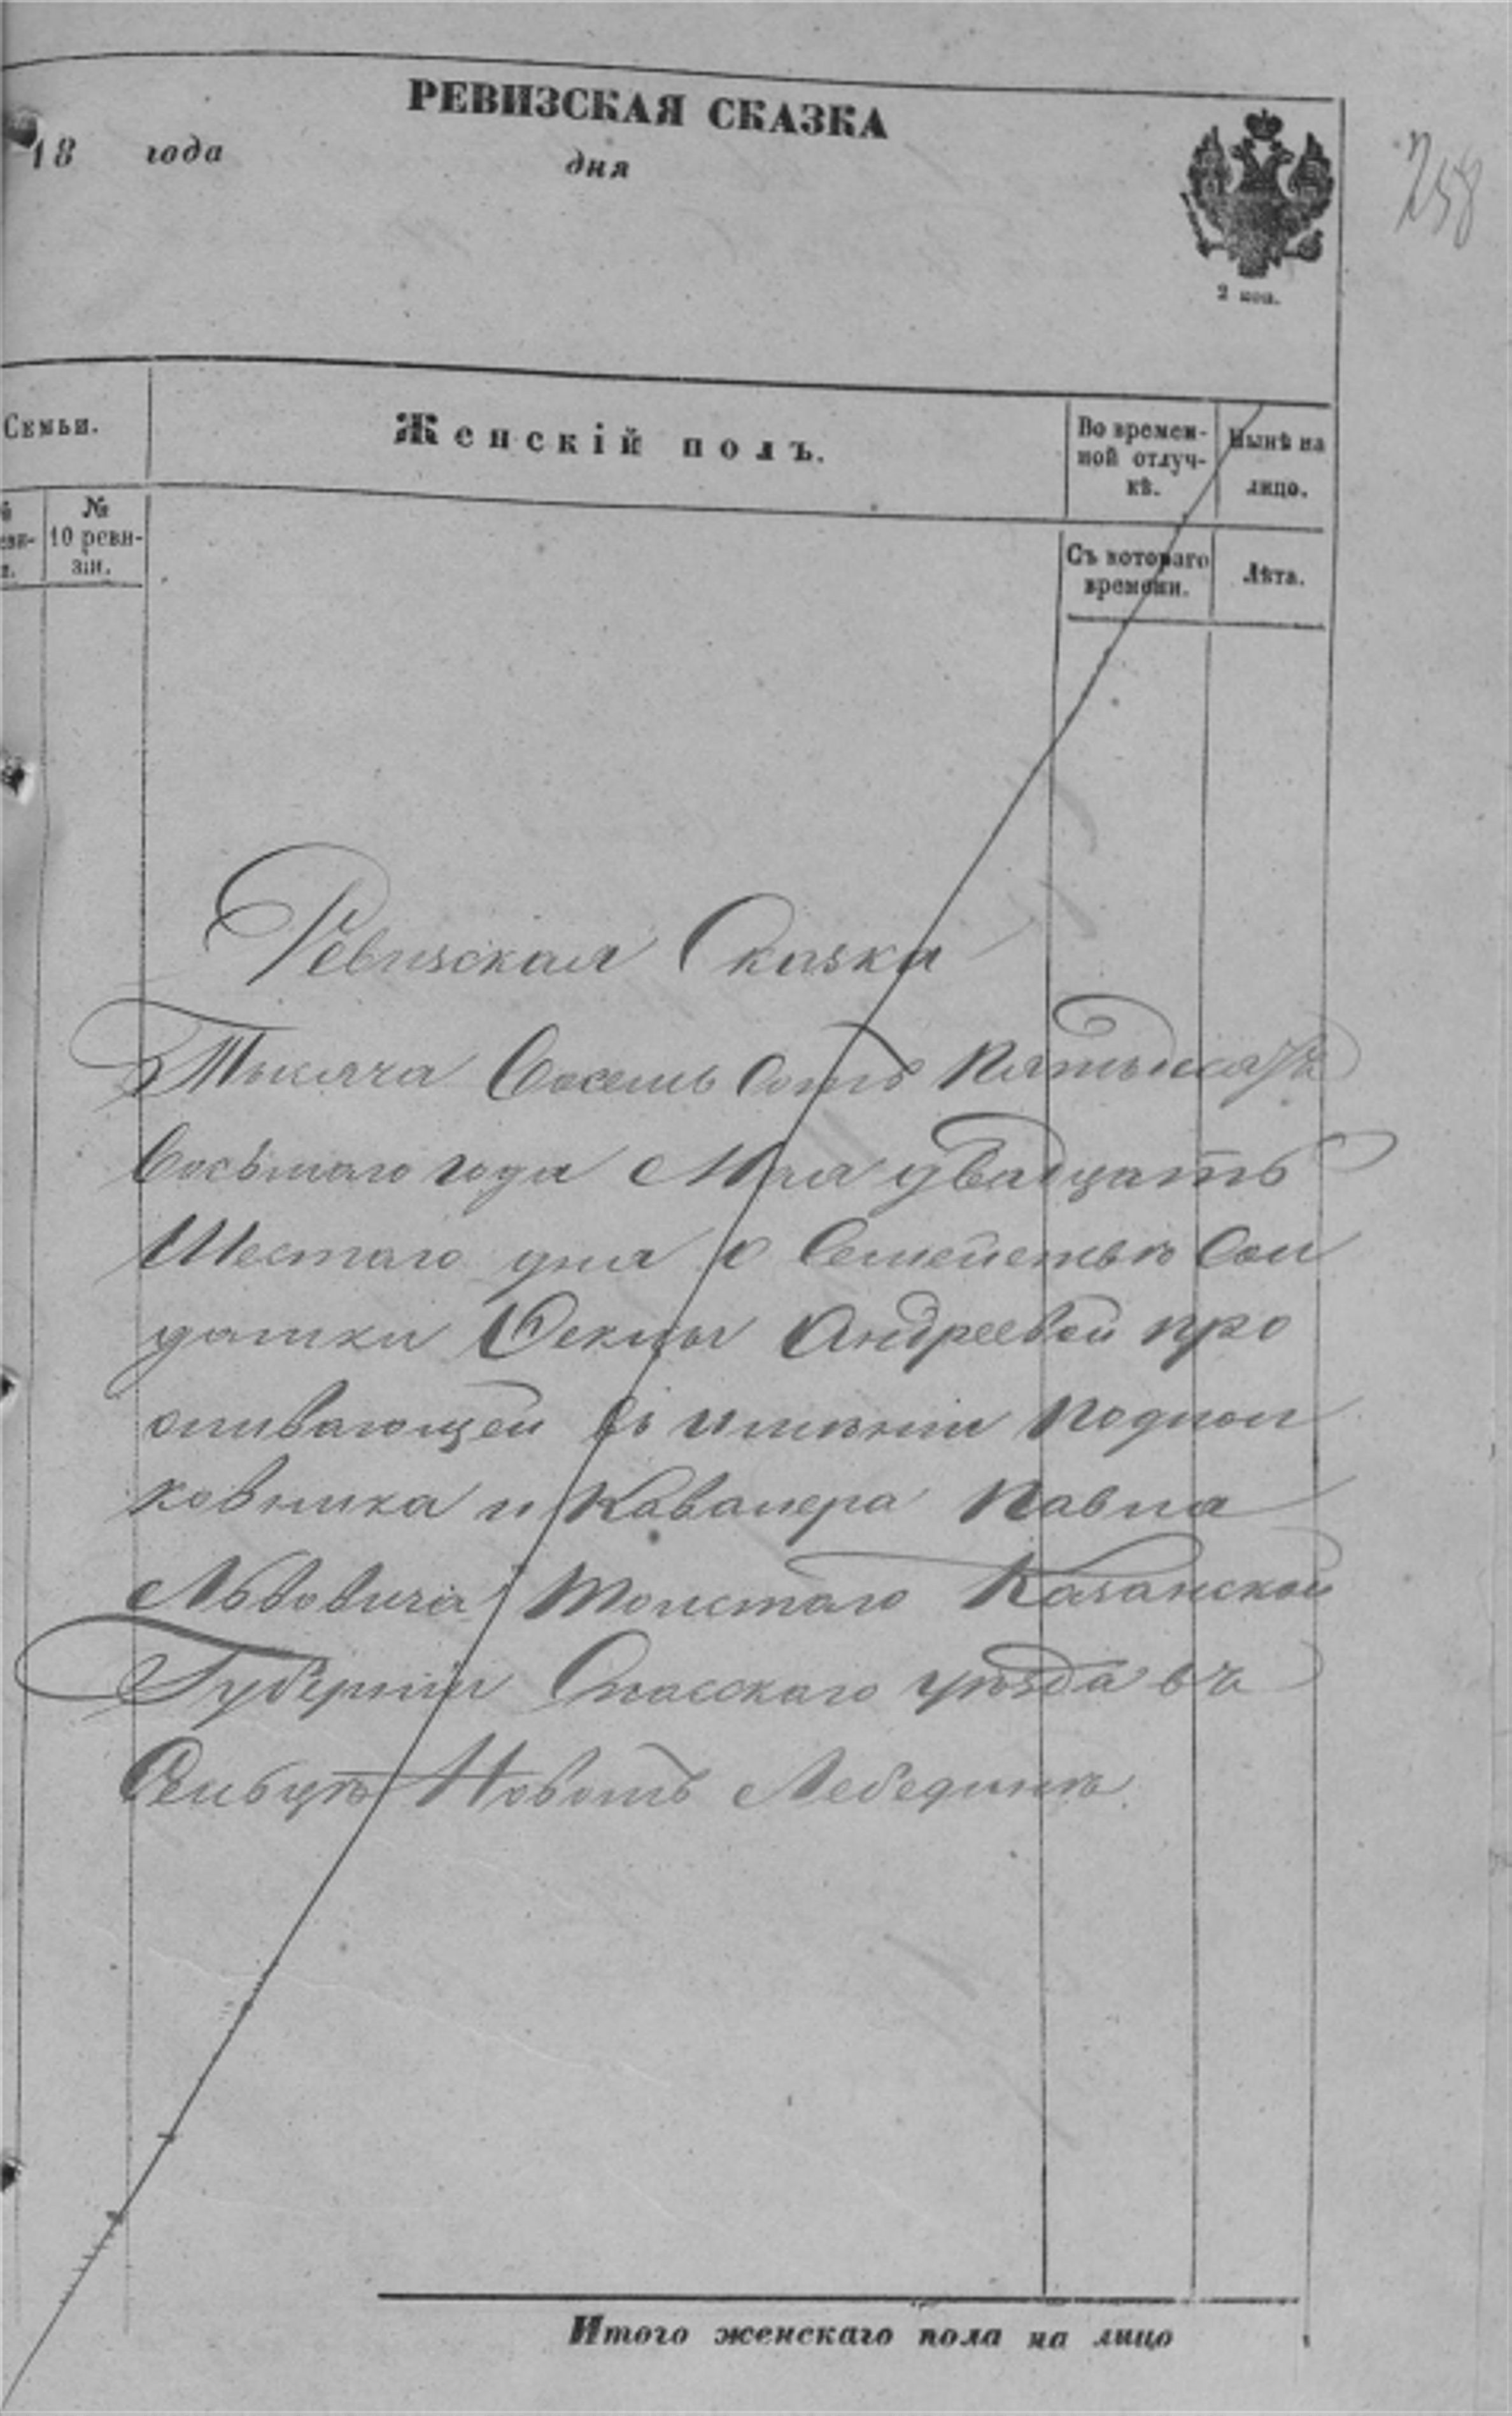 РЕВИЗСКАЯ СКАЗКА
18 года дня
258
2 коп.
Семьи.
Женскій полъ.
Во времен-
ной отлуч-
кѣ.
Нынѣ на
лицо.
№
10 реви-
зіи.
Съ котораго
времени.
Лѣта.
Ревизская Сказка
Тысяча Восемь Сотъ Пятьдесятъ
Восьмаго года Мая двадцать
Шестаго дня о Семействѣ Сол
датки Феклы Андреевой про
живающей въ имѣніи Подпол
ковника и Кавалера Павла
Львовича Толстаго Казанской
Губерніи Спасскаго уѣзда въ
Сельцѣ Новомъ Лебедикѣ
Итого женскаго пола на лицо